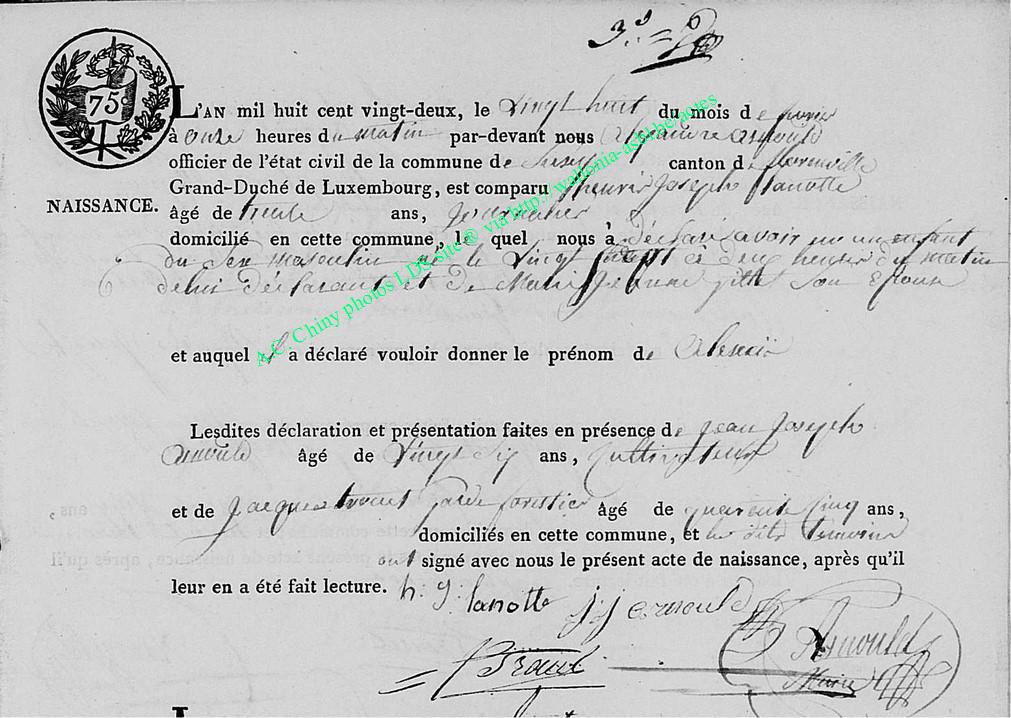 75 c
L'AN mil huit cent vingt-deux, le vingt huit du mois de fevrier
à onze heures du matin par-devant nous arnould
officier de l'état civil de la commune de canton de florenville
Grand-Duché de Luxembourg, est comparu henrix Joseph lanotte
NAISSANCE.
âgé de trente ans,
domicilié en cette commune, le quel nous a déclaré avoir un enfant
du sexe masculin né le vingt a deux heures du matin
de lui déclarant et de Marie Jeanne gille son Epouse
et auquel il a déclaré vouloir donner le prénom de
Lesdites déclaration et présentation faites en présence de jean Joseph
arnould âgé de vingt six ans, Cultivateur
et de jacques garde forestier âgé de quarente cinq ans,
domiciliés en cette commune, et les dits temoins
ont signé avec nous le présent acte de naissance, après qu'il
leur en a été fait lecture. h. j. lanotte j j arnould
Arnould
Maire
A.C. Chiny photos LDS-site® via http://wallonia-asbl.be/actes